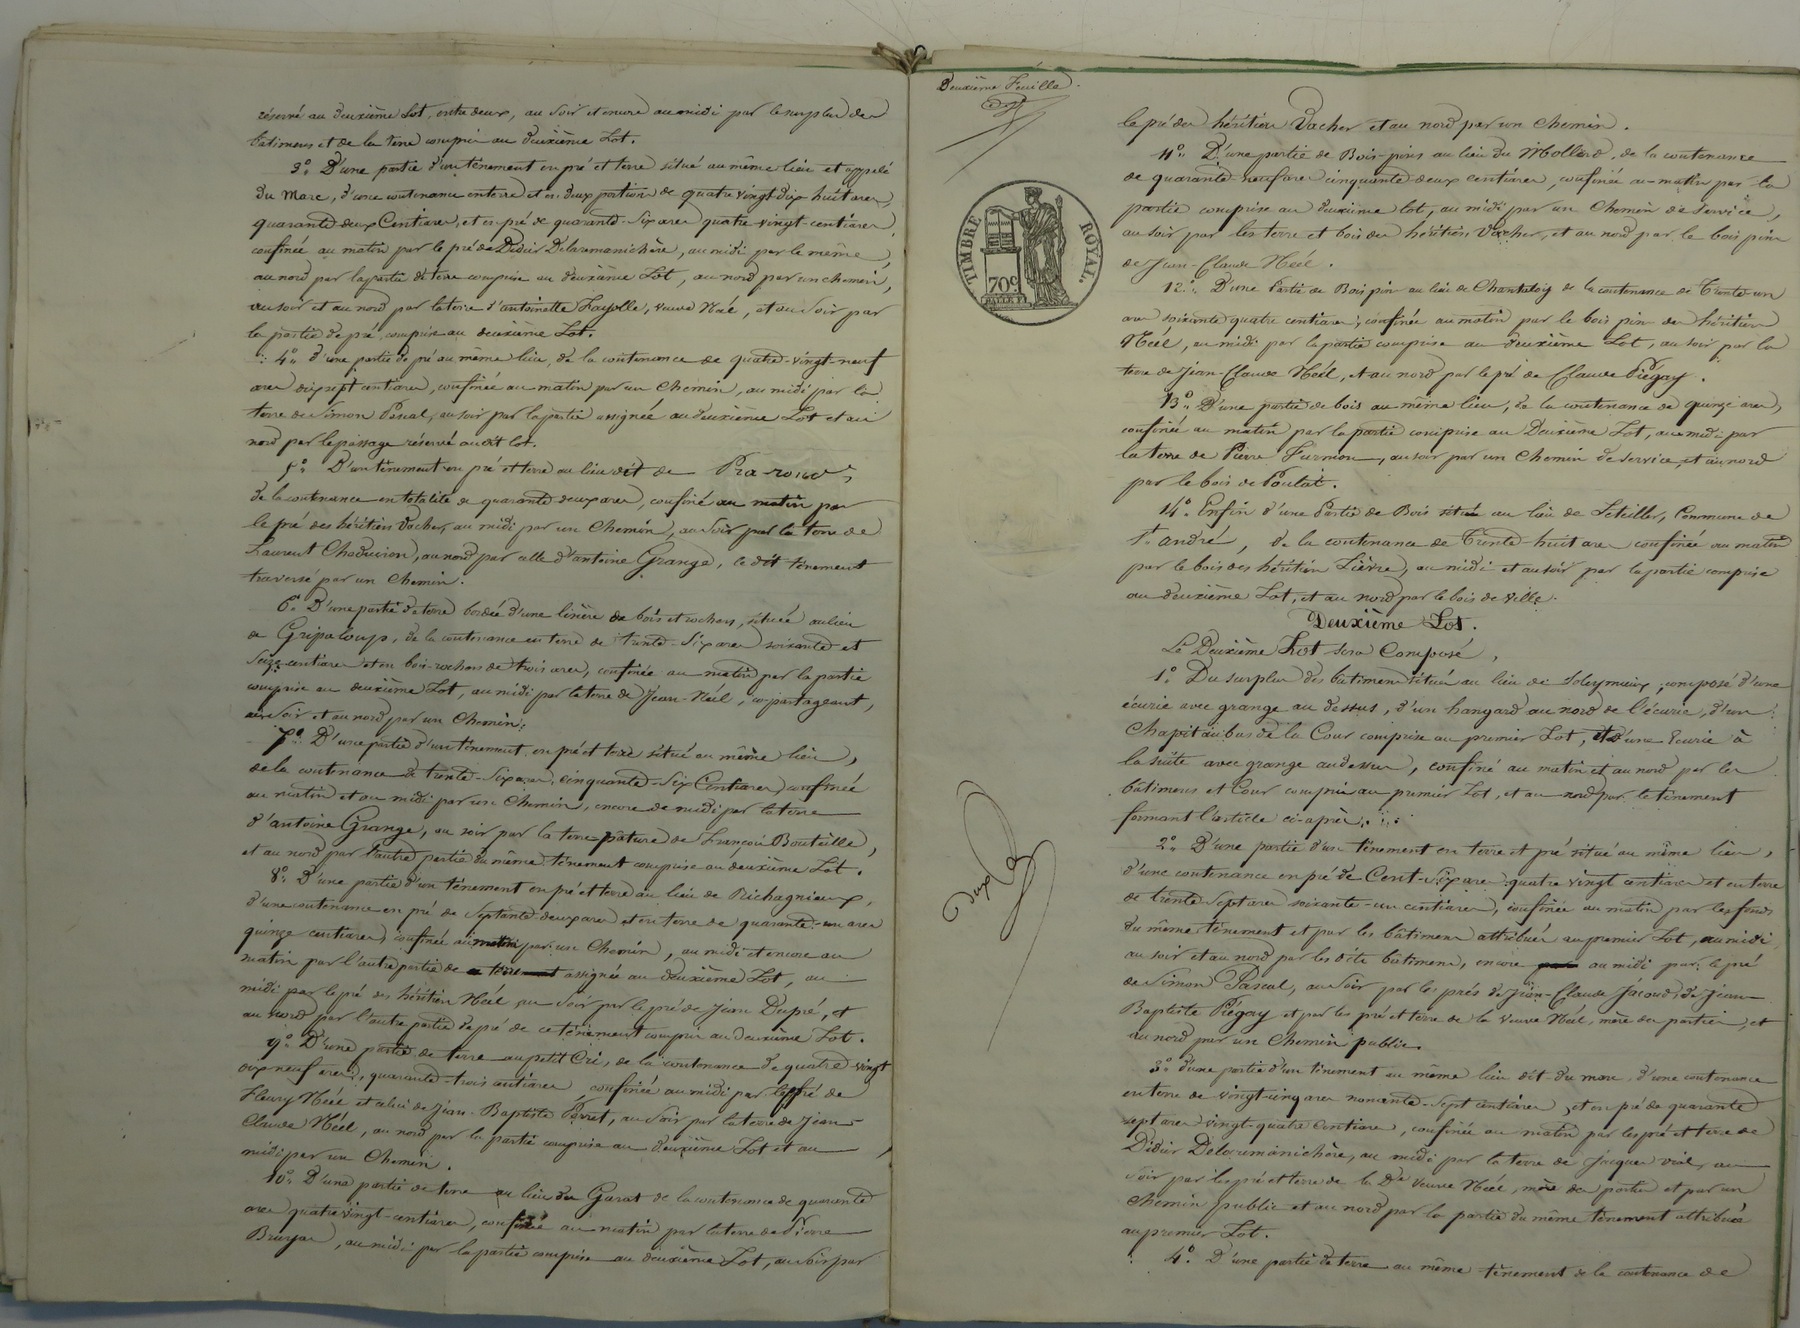 réservé au deuxième Lot, entre deux, au soir et encore au midi par le surplus des
bâtimens et de la terre compris au deuxième Lot.
3° D'une partie d'un tènement en pré et terre situé au même lieu et appelé
du Marc, d'une contenance en terre et en deux portions de quatre vingt dix huit ares,
quarante deux Centiares, et en pré de quarante-Six ares quatre vingt-centiares,
confinée au matin par le pré de Didier Delarmanichère, au midi par le même,
au nord par la partie de terre comprise au deuxième Lot, au nord par un chemin,
au soir et au nord par la terre d'antoinette Fayolle, veuve Néel, et au Soir par
la partie de pré, comprise au deuxième Lot.
4° d'une partie de pré au même lieu, de la contenance de quatre-vingt-neuf
ares dix sept centiares, confinée au matin par un Chemin, au midi par la
terre de Simon Pascal, au soir par la partie assignée au deuxième Lot et au
nord par le passage réservé audit lot.
5° D'un tènement en pré et terre au lieu dit de Pra-rond,
de la contenance en totalité de quarante deux ares, confiné au matin par
le pré des héritiers Vacher, au midi par un Chemin, au Soir par la terre de
Laurent, au nord par celle d'antoine Grange, le dit tènement
traversé par un Chemin.
6° D'une partie de terre bordée d'une lisière de bois et rochers, située au lieu
de Gripaloup, de la contenance en terre de trente-Six ares soixante et
Seize centiares et en bois-rochers de trois ares, confinée au matin par la partie
comprise au deuxième Lot, au midi par la terre de Jean-Néel, co-partageant,
au Soir et au nord par un Chemin.
7° D'une partie d'un tènement en pré et terre situé au même lieu,
de la contenance de trente-Six ares, cinquante-Six Centiares, confinée
au matin et au midi par un Chemin, encore de midi par la terre
d'antoine Grange, au soir par la terre-pâture de François Bouteille,
et au nord par l'autre partie du même tènement comprise au deuxième Lot.
8° D'une partie d'un tènement en pré et terre au lieu de Richagnieux,
d'une contenance en pré de Septante-deux ares et en terre de quarante-un ares
quinze centiares, confinée au matin par un Chemin, au midi et encore au
matin par l'autre partie de terre assignée au deuxième Lot, au
midi par le pré des héritiers Néel, au Soir par le pré de Jean Dupré, et
au nord par l'autre partie de pré de ce tènement compris au deuxième Lot.
9° D'une partie de terre au petit Cri, de la contenance de quatre vingt
dix neuf ares, quarante-trois centiares, confinée au midi par le pré de
Fleury Néel et celui de Jean-Baptiste Perret, au Soir par la terre de Jean-
Claude Néel, au nord par la partie comprise au deuxième Lot et au
midi par un Chemin.
10° D'une partie de terre au lieu du Garat de la contenance de quarante
ares quatre vingt-centiares, confinée au matin par la terre de Pierre
, au midi par la partie comprise au deuxième Lot, au Soir par
Deuxième Feuille.
TIMBRE ROYAL.
70c.
le pré des héritiers Vacher et au nord par un Chemin.
11° D'une partie de Bois-pins au lieu du Mollard, de la contenance
de quarante-neuf ares cinquante deux centiares, confinée au matin par la
partie comprise au deuxième lot, au midi par un Chemin de Service,
au soir par les terre et bois des héritiers Vacher, et au nord par le bois pins
de Jean-Claude Néel.
12° D'une Partie de Bois pin au lieu de Chanteloy de la contenance de Trente-un
ares soixante quatre centiares, confinée au matin par le bois pins des héritiers
Néel, au midi par la partie comprise au deuxième Lot, au soir par la
terre de Jean-Claude Néel, et au nord par le pré de Claude Piégay.
13° D'une partie de bois au même lieu, de la contenance de quinze ares,
confinée au matin par la partie comprise au Deuxième Lot, au midi par
la terre de Pierre Furnon, au soir par un Chemin de service, et au nord
par le bois de Poulat.
14° Enfin d'une Partie de Bois située au lieu de Leteiller, Commune de
St. andré, de la contenance de Trente-huit ares confinée au matin
par le bois des héritiers Lièvre, au midi et au soir par la partie comprise
au deuxième Lot, et au nord par le bois de ville.
Deuxième Lot.
Le Deuxième Lot sera Composé,
1° Du surplus des bâtimens situés au lieu de Soleymieux, composé d'une
écurie avec grange au dessus, d'un hangard au nord de l'écurie, d'un
Chapit au bas de la Cour comprise au premier Lot, et d'une Ecurie à
la suite avec grange au dessus, confiné au matin et au nord par les
bâtimens et Cour compris au premier Lot, et au nord par le tènement
formant l'article ci-après.
2° D'une partie d'un tènement en terre et pré situé au même lieu,
d'une contenance en pré de Cent-Six ares quatre vingt centiares et en terre
de trente Sept ares soixante-un centiares, confinée au matin par les fonds
du même tènement et par les bâtimens attribués au premier Lot, au midi
au soir et au nord par les dits bâtimens, encore au midi par le pré
de Simon Pascal, au Soir par les prés de Jean-Claude Jacoud, de Jean
Baptiste Piégay et par les pré et terre de la veuve Néel, mère des parties, et
au nord par un Chemin public.
3° d'une partie d'un tènement au même lieu dit du marc, d'une contenance
en terre de vingt-cinq ares nonante-Sept centiares, et en pré de quarante
sept ares vingt-quatre Centiares, confinée au matin par les pré et terre de
Didier Delarmanichère, au midi par la terre de Jacques Vial, au
Soir par les pré et terre de la De veuve Néel, mère des parties et par un
Chemin public et au nord par la partie du même tènement attribuée
au premier Lot.
4° D'une partie de terre au même tènement de la contenance de